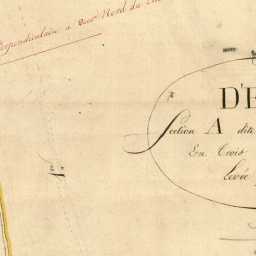 Perpendiculaire a
Nord du
D'E
Section A dite
En Trois
Levée